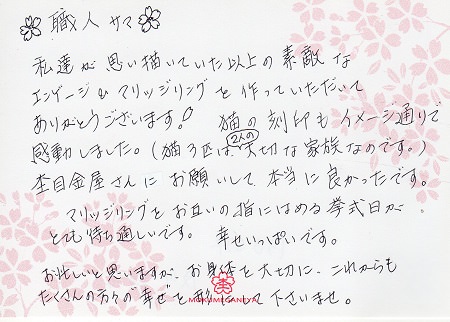 職人サマ
私達が思い描いていた以上の素敵な
エンゲージ&マリッジリングを作っていただいて
ありがとうございます! 猫の刻印もイメージ通りで
感動しました。(猫3匹は、2人の大切な家族なのです。)
杢目金屋さんにお願いして、本当に良かったです。
マリッジリングをお互いの指にはめる挙式日が、
とても待ち遠しいです。 幸せいっぱいです。
お忙しいと思いますが、お身体を大切に、これからも
たくさんの方々の幸せを って下さいませ。
MOKUMEGANEYA